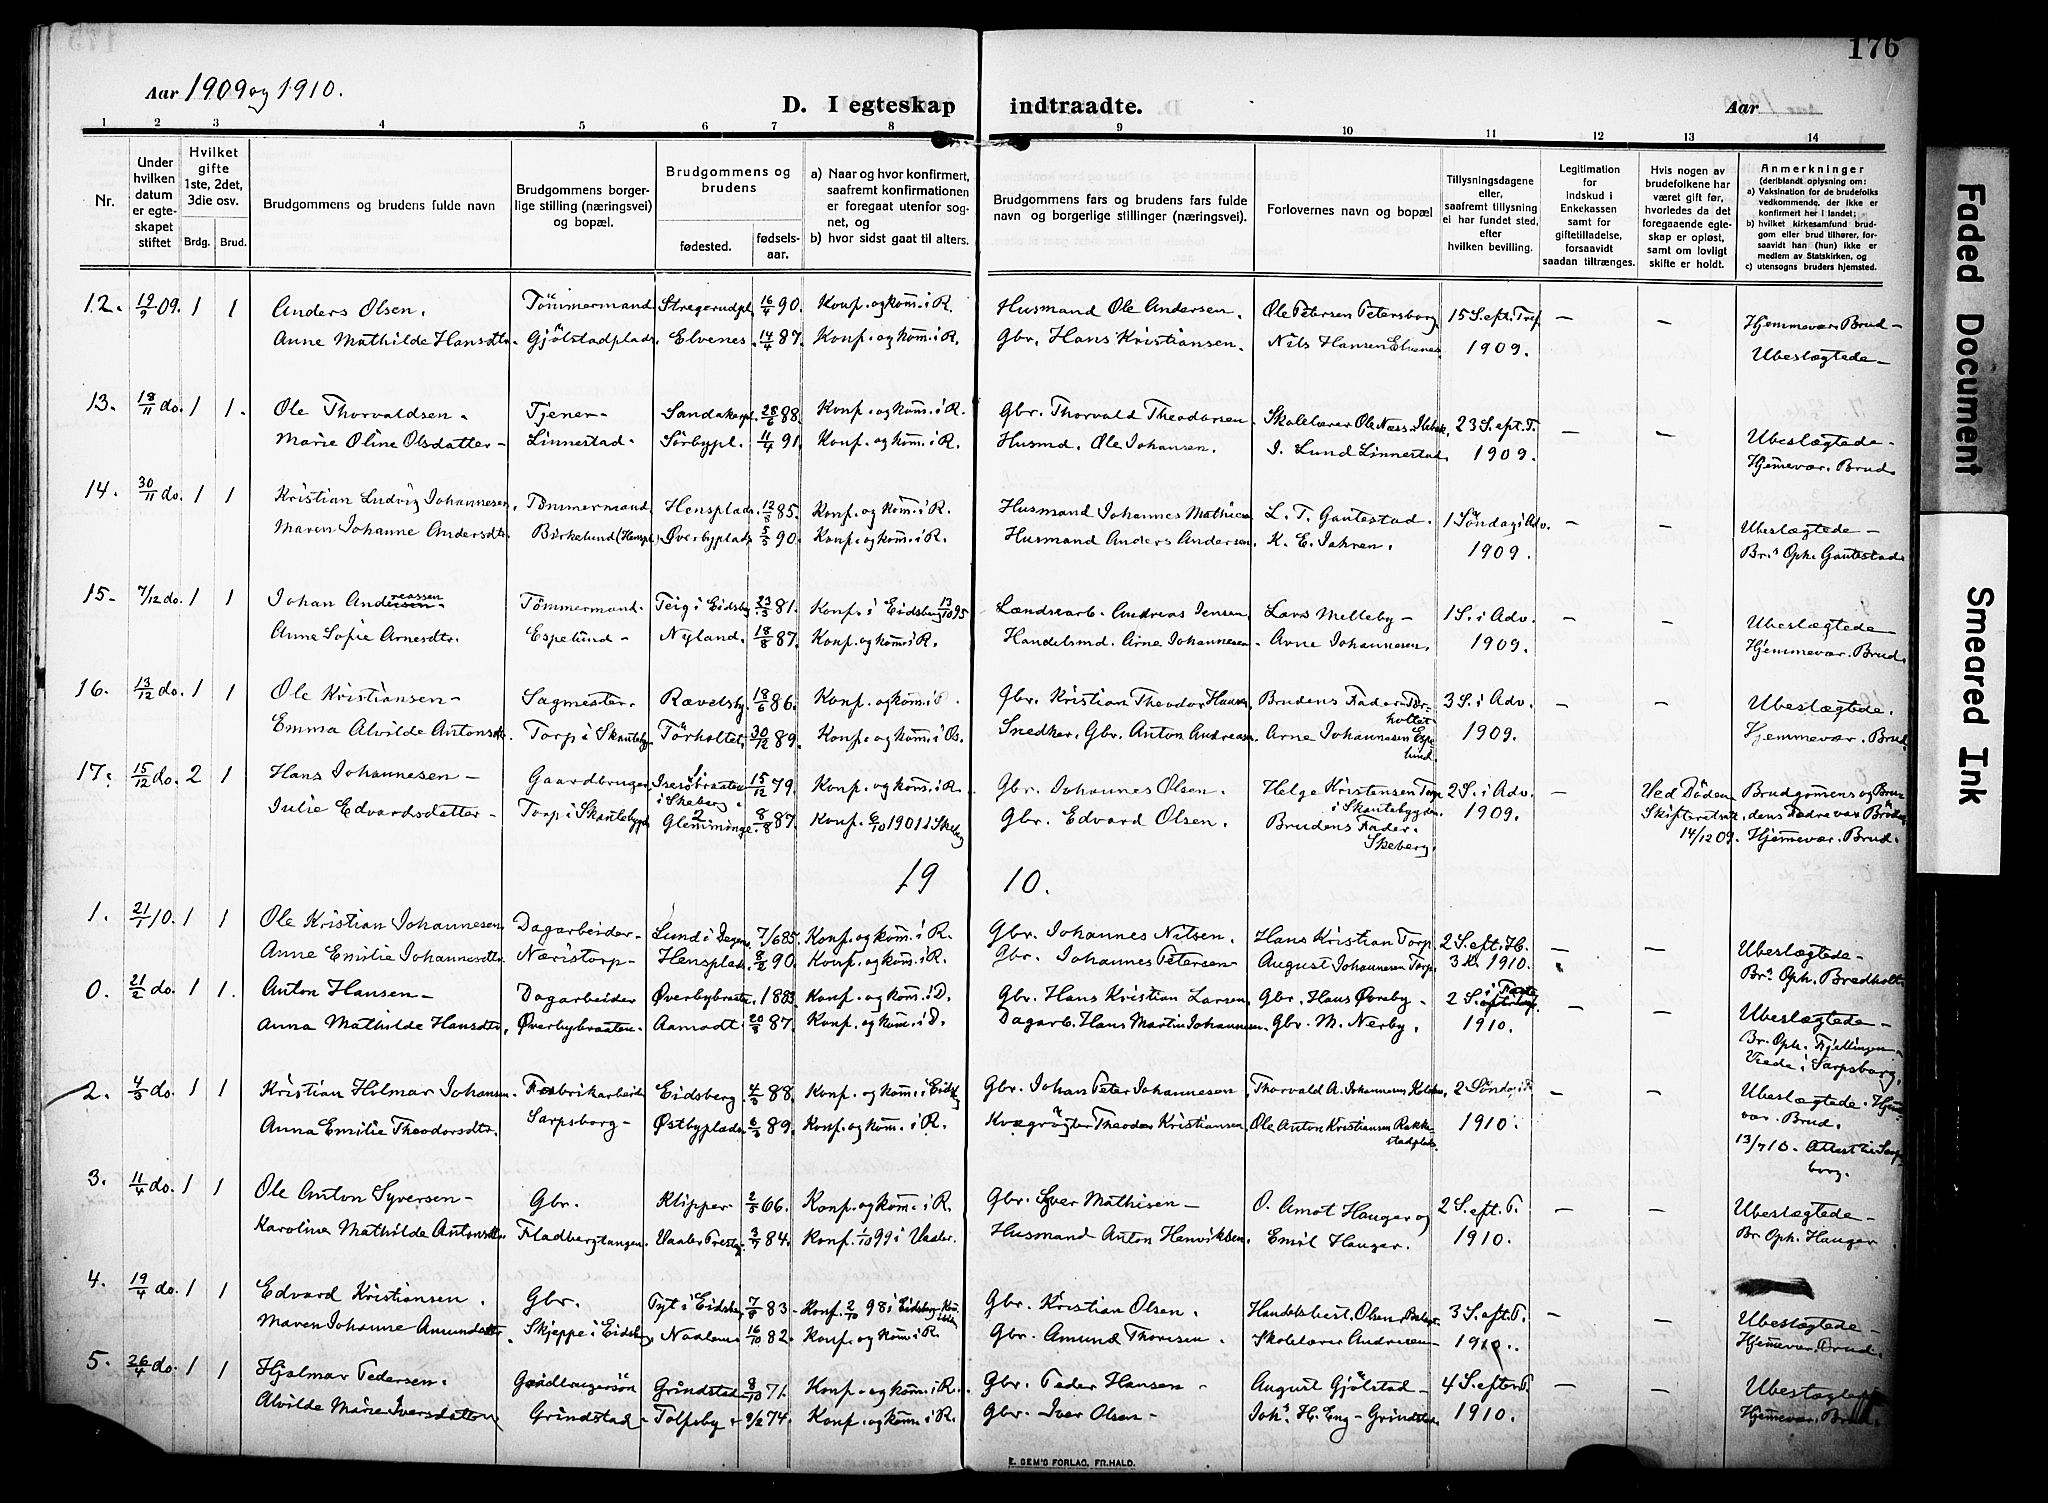 176
Aar 1909 og 1910.
D. I egteskap indtraadte.
Aar
1 2 3 4 5 6 7 8 9 10 11 12 13 14
Nr.
Under hvilken datum er egteskapet stiftet
Hvilket gifte 1ste, 2det, 3die osv.
Brdg. Brud.
Brudgommens og brudens fulde navn
Brudgommens borgerlige stilling (næringsvei) og bopæl.
Brudgommens og brudens
fødested. fødselsaar.
a) Naar og hvor konfirmert, saafremt konfirmationen er foregaat utenfor sognet, og
b) hvor sidst gaat til alters.
Brudgommens fars og brudens fars fulde navn og borgerlige stillinger (næringsvei).
Forlovernes navn og bopæl
Tillysningsdagene eller, saafremt tillysning ei har fundet sted, efter hvilken bevilling.
Legitimation for indskud i Enkekassen samt for giftetilladelse, forsaavidt saadan tiltrænges.
Hvis nogen av brudefolkene har været gift før, hvorledes da det foregaaende egteskap er opløst, samt om lovligt skifte er holdt.
Anmerkninger (deriblandt oplysning om: a) Vaksination for de brudefolks vedkommende, der ikke er konfirmert her i landet; b) hvilket kirkesamfund brudgom eller brud tilhører, forsaavidt han (hun) ikke er medlem av Statskirken, og c) utensogns bruders hjemsted.
12. 19/9 09. 1 1 Anders Olsen. Tömmermand Stregerudpl. 16/4 90. Konf. og kom. i R. Husmand Ole Andersen. Ole Petersen Petersborg. 15 S. eft. Tref. – – Hjemmevær. Brud –
Anne Mathilde Hansdtr. Gjölstadplads. Elvenes. 14/4 87. Konf. og kom. i R. Gbr. Hans Kristiansen. Nils Hansen Elvenes 1909. Ubeslægtede –
13. 18/11 do. 1 1. Ole Thorvaldsen. Tjener – Sandakerpl. 28/6 88. Konf. og kom. i R. Gbr. Thorvald Theodorsen Skolelærer Ole Næss 23 S. eft. T. – – Ubeslægtede –
Marie Oline Olsdatter – Linnestad – Sörbypl. 11/4 91. Konf. og kom. i R. Husmd. Ole Johansen. I. Lund Linnestad. 1909. Hjemmevær. Brud.
14. 30/11 do. 1 1 Kristian Ludvig Johannesen. Tömmermand Hensplads. 12/8 85. Konf. og kom. i R. Husmand Johannes Mathisen L. T. Gautestad. 1 Söndag i Adv. – – Ubeslægtede –
Maren Johanne Andersdtr. Birkelund (Henspl.) Øverbyplads 5/5 90. Konf. og kom. i R. Husmand Anders Andersen. K. E. Jahren. 1909. Br. Oph. Gautestad
15 – 7/12 do. 1 1 Johan Andreassen Tömmermand – Teig i Eidsberg 23/3 81. Konf. i Eidsberg 13/10 95 Landevarb. Andreas Jensen Lars Melleby – 1 S. i Adv. – – Ubeslægtede
Anne Sofie Arnesdtr. Espelund – Nyland. 18/8 87. Konf. og kom. i R. Handelsmd. Arne Johannesen – Arne Johannesen. 1909. Hjemmevær. Brud.
16. 13/12 do. 1 1 Ole Kristiansen – Sagmester. Rævelsby. 18/6 86. Konf. og kom. i Gbr. Kristian Theodor Hansen Brudens Fader Torholtet 3 S. i Adv. – – Ubeslægtede.
Emma Alvilde Antonsdtr. Torp i Skauteby. Torholtet. 30/12 89. Konf. og kom. i Os. Snedker, Gbr. Anton Andreasen Arne Johannesen Espelund. 1909. Hjemmevær. Brud
17. 15/12 do. 2 1 Hans Johannesen – Gaardbruger i Skeberg. 15/12 79. Konf. og kom. i R. Gbr. Johannes Olsen. Helge Kristensen Torp i Skautebygden 2 S. i Adv. – Ved Döden Brudgommens og Bru-
Julie Edvardsdatter – Torp i Skautebygd. Glemminge. 8/8 87. Konf. 6/10 1901 i Skeberg Gbr. Edvard Olsen. Brudens Fader. Skeberg. 1909. Skifteretsatt. 14/12 09. dens Fædre var Brödre
Hjemmevær. Brud.
19 10.
1. 21/1 10. 1 1 Ole Kristian Johannesen Dagarbeider – Lund i Degernes 7/6 85. Konf. og kom. i R. Gbr. Johannes Nilsen. Hans Kristian Torp 2 S. eft. H. – – Ubeslægtede –
Anne Emilie Johannesdtr. Næristorp – Hensplads. 8/2 90. Konf. og kom. i R. Gbr. Johannes Petersen – August Johannesen Torp. 3 K. 1910. Br. Oph. Bredholt
0. 21/2 do. 1 1. Anton Hansen – Dagarbeider Øverbybraaten. 1883. Konf. og kom. i D. Gbr. Hans Kristian Larsen Gbr. Hans Øvreby – 2 S. i Faste – – Ubeslægtede –
Anna Mathilde Hansdtr. Øverbybraaten – Aamodt. 20/8 87. Konf. og kom. i D. Dagarb. Hans Martin Johannesen. Gbr. M. Nerby. 1910. Br. Oph. Fjellingen
Væde i Sarpsborg.
2. 4/3 do. 1 1 Kristian Hilmar Johansen. Fabrikarbeider Eidsberg. 4/3 88. Konf. og kom. i Eidsberg Gbr. Johan Peter Johannesen Thorvald A. Johannesen 2 Söndag i F. – – Ubeslægtede. Hjem-
Anna Emilie Theodorsdtr. Sarpsborg – Østbyplads 6/3 89. Konf. og kom. i R. Kvægrögter Theodor Kristiansen. Ole Anton Kristiansen Rakkestadplads. 1910. vær. Brud.
13/7 10. Attest til Sarpsborg.
3. 11/4 do. 1 1 Ole Anton Syversen – Gbr. Klipper – 2/5 66. Konf. og kom. i R. Gbr. Syver Mathisen – O. Amot Hauger og 2 S. eft. P. – – Ubeslægtede –
Karoline Mathilde Antonsdtr. Fladbergtangen. Vaaler Prestgj. 3/7 84. Konf. 1/10 99 i Vaaler. Husmand Anton Henriksen. Emil Hauger. 1910. Br. Oph. Hauger
4. 19/4 do. 1 1 Edvard Kristiansen. Gbr. Tyt i Eidsberg 7/8 83 – Konf. 2/10 98 i Eidsberg Gbr. Kristian Olsen. Handelsbest. Olsen 3 S. eft. P. – – Ubeslægtede –
Maren Johanne Amundsdtr. Skjeppe i Eidsberg Naalum 16/10 82. Konf. og kom. i R. Gbr. Amund Thoresen. Skolelærer Andresen – 1910. Hjemmevær. Brud.
5. 26/4 do. 1 1 Hjalmar Pedersen. Gaardbrugersön Grindstad 8/10 71. Konf. og kom. i R. Gbr. Peder Hansen – August Gjölstad – 4 S. efter P. – – Ubeslægtede
Alvilde Marie Iversdatter Grindstad – Tolfsby – 9/2 74. Konf. og kom. i R. Gbr. Iver Olsen – Joh. H. Eng – Grindstad. 1910. Hjemmevær. Brud.
E. SEM'S FORLAG, FR.HALD.
Faded Document
Smeared Ink